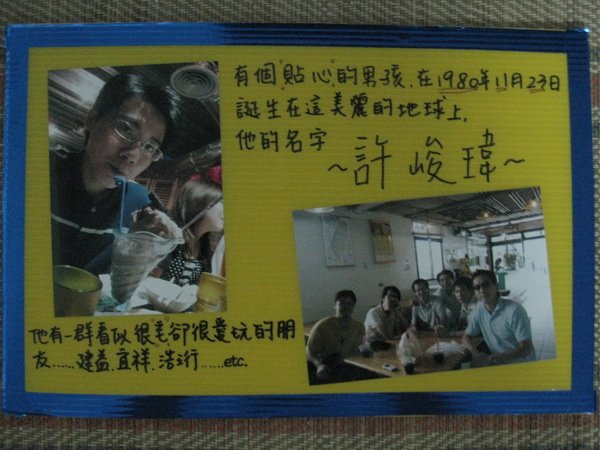 有個貼心的男孩,在1980年11月23日
誕生在這美麗的地球上,
他的名字
~許峻瑋~
他有一群看似很老卻很愛玩的朋
友......建益.宜祥.浩珩......etc.